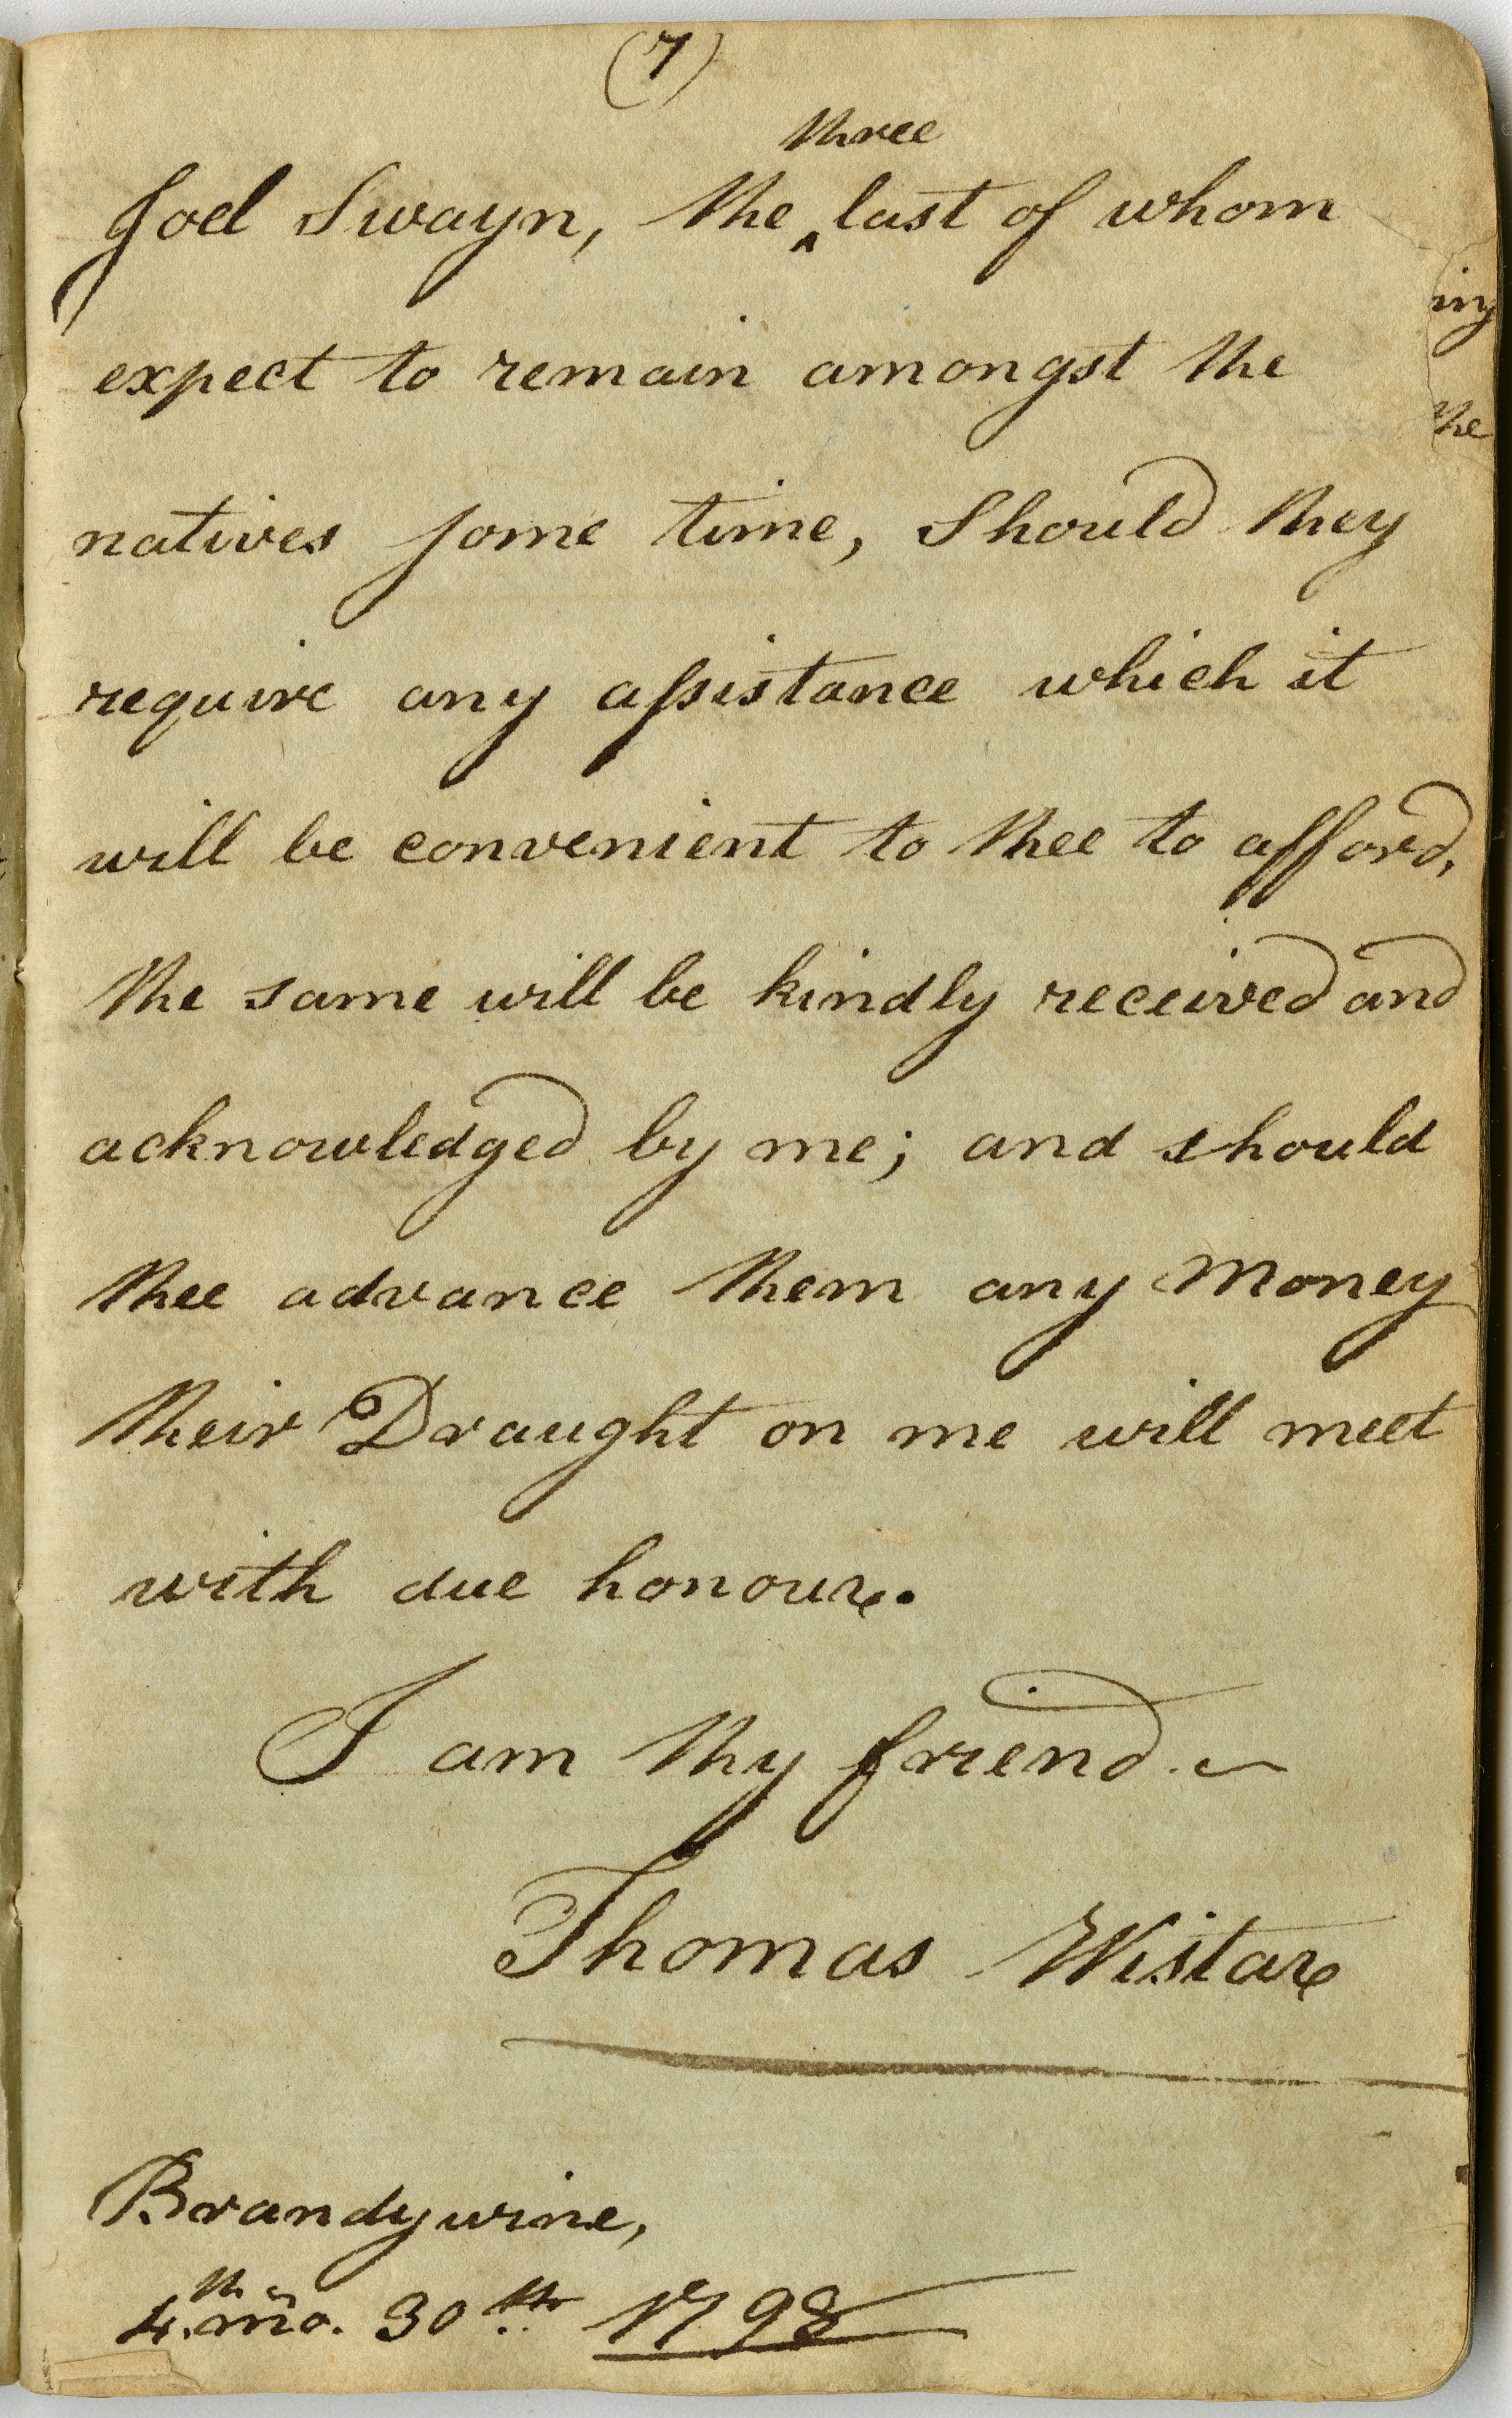 (7)
three
Joel Swayn, the ‸ last of whom
ing
expect to remain amongst the
the
natives some time, Should they
require any assistance which it
will be convenient to thee to afford,
the same will be kindly received and
acknowledged by me; and should
thee advance them any Money
their Draught on me will meet
with due honour.
I am thy friend.
Thomas Wistar
Brandywine,
4th. mo. 30th. 1798